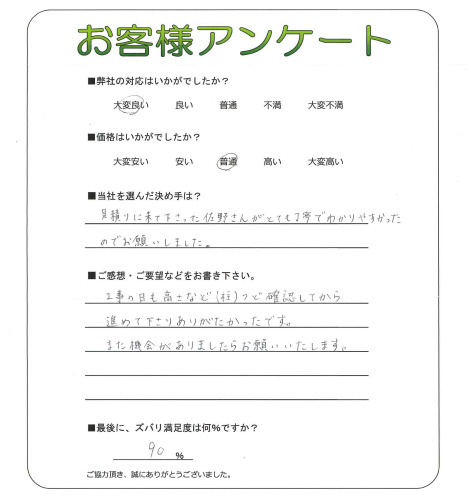 お客様アンケート
■弊社の対応はいかがでしたか？
大変良い 良い 普通 不満 大変不満
■価格はいかがでしたか？
大変安い 安い 普通 高い 大変高い
■当社を選んだ決め手は？
見積りに来て下さった佐野さんがとても丁寧でわかりやすかった
のでお願いしました。
■ご感想・ご要望などをお書き下さい。
工事の日も高さなど(柱)つど確認してから
進めて下さりありがたかったです。
また機会がありましたらお願いいたします。
■最後に、ズバリ満足度は何％ですか？
90 %
ご協力頂き、誠にありがとうございました。